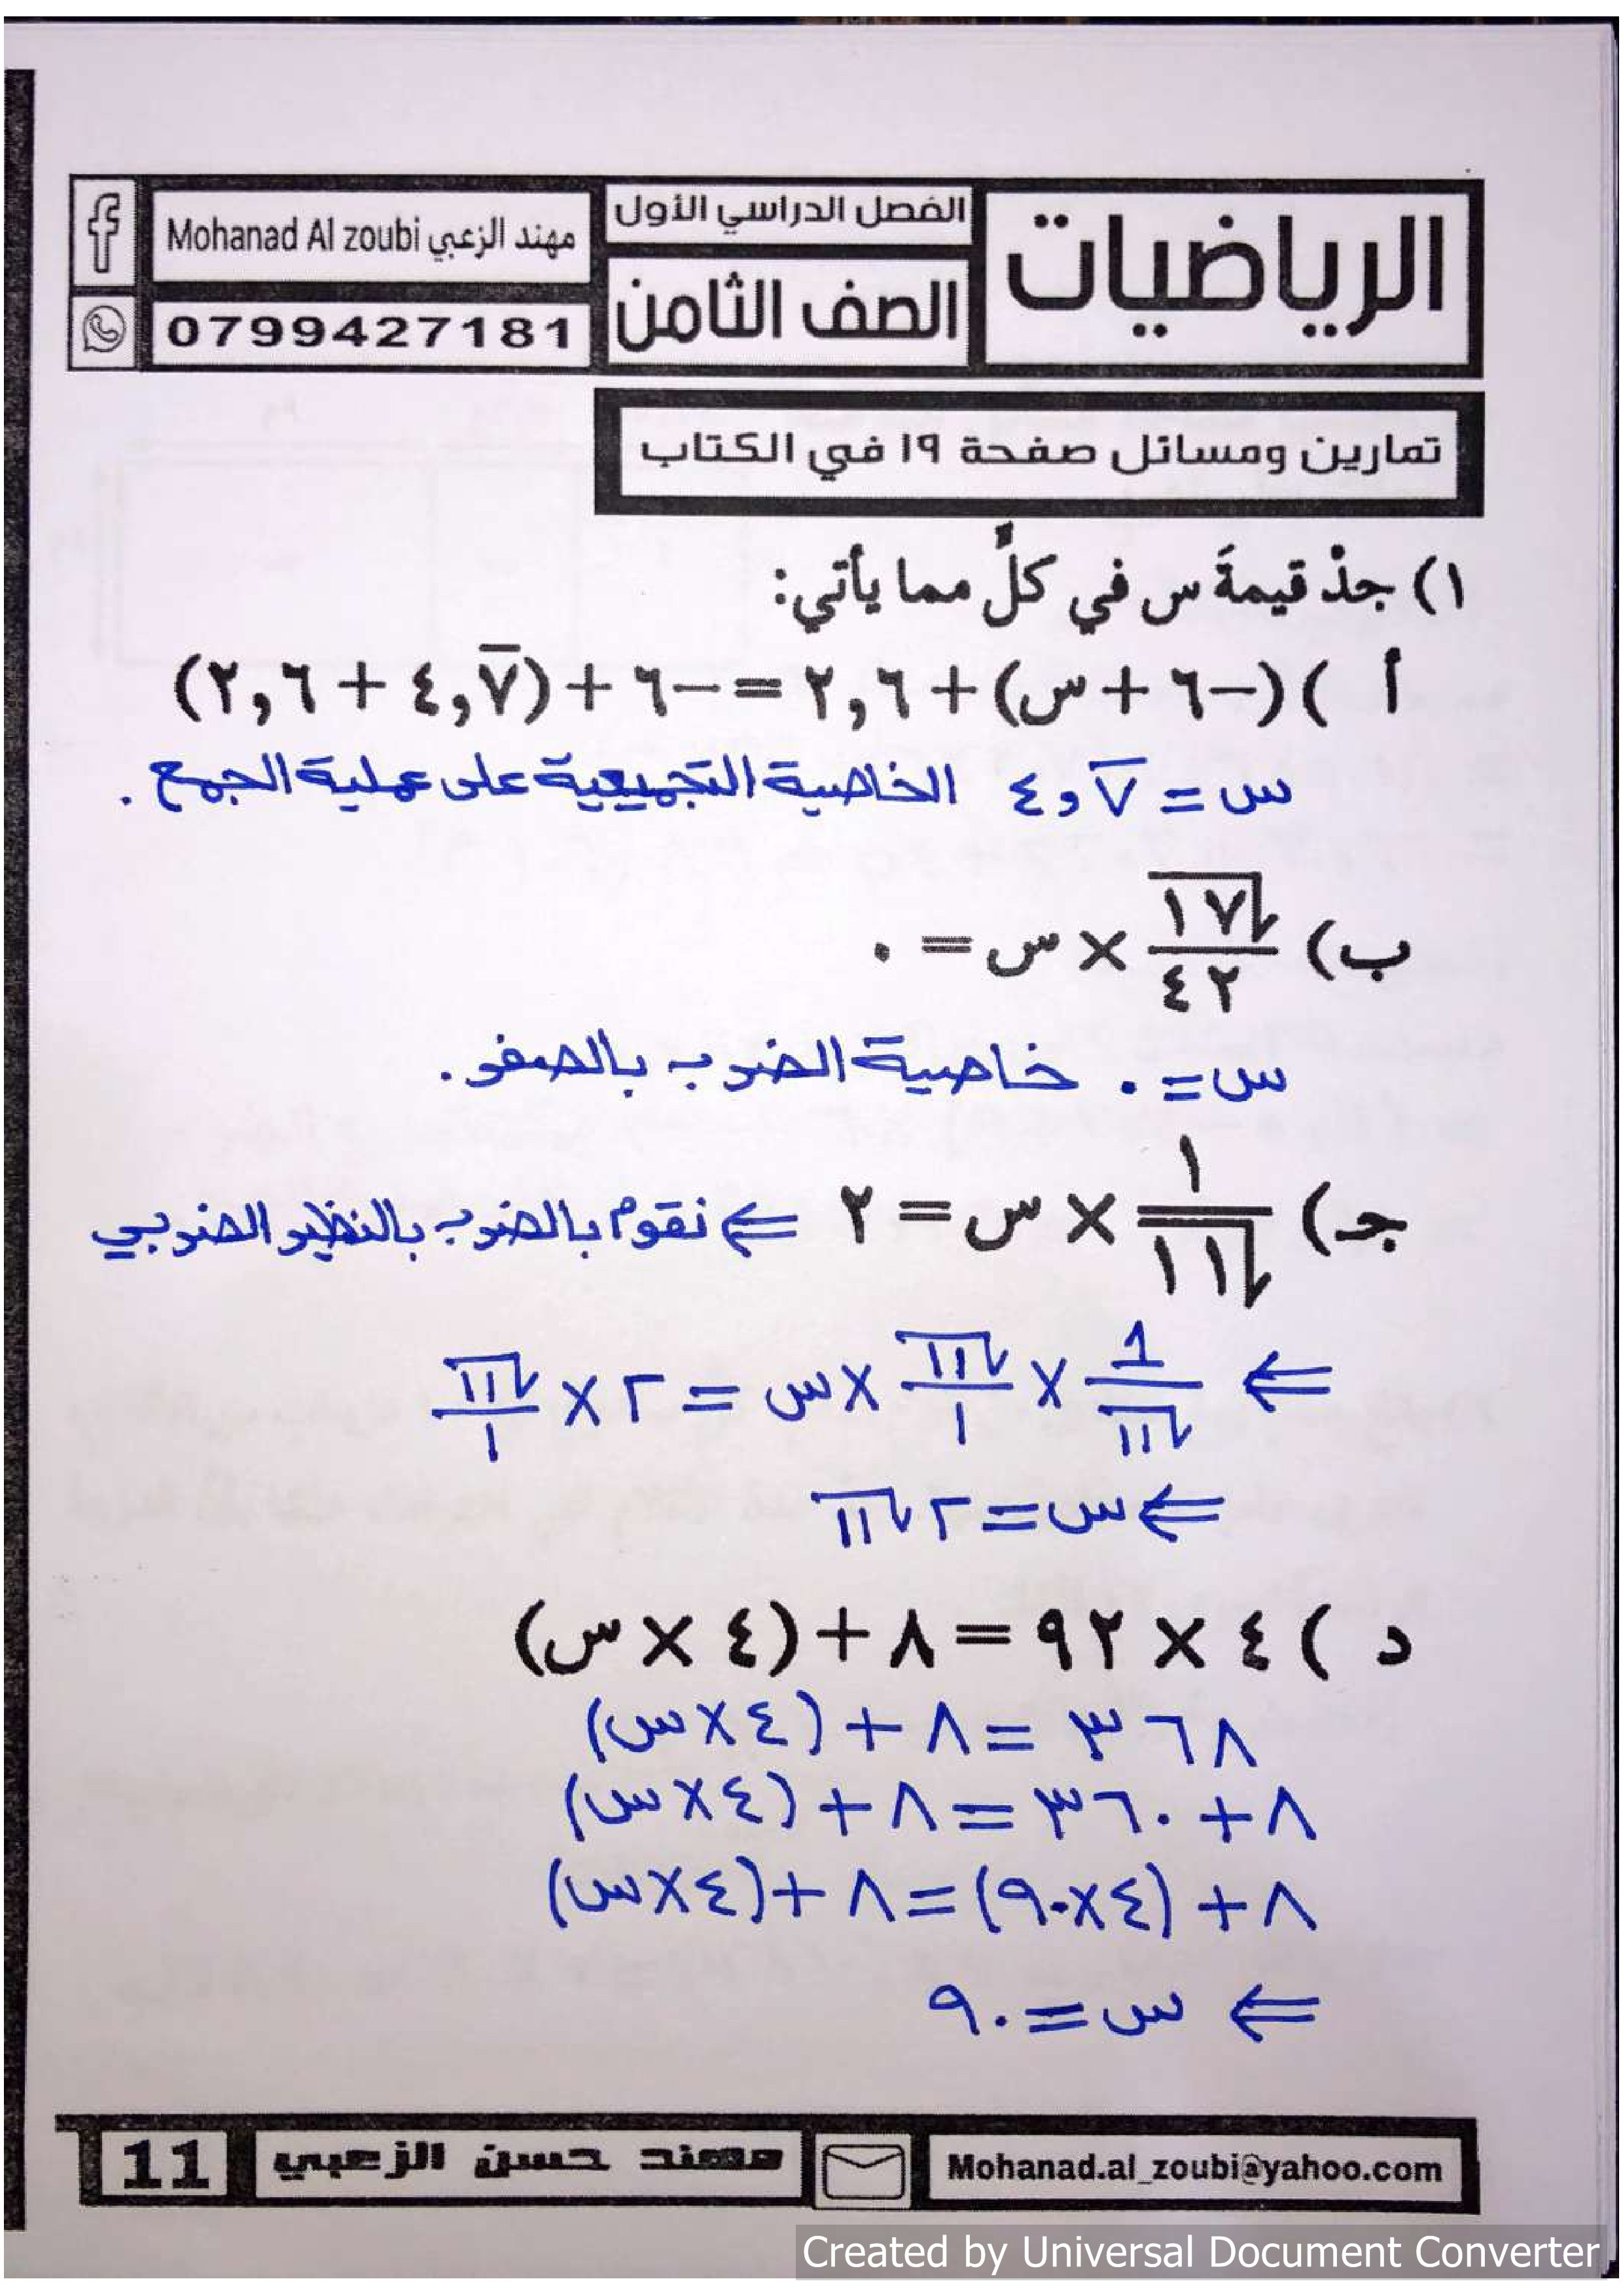 الرياضيات
الفصل الدراسي الأول
الصف الثامن
مهند الزعبي Mohanad Al zoubi
0799427181
تمارين ومسائل صفحة ١٩ في الكتاب
١) جدْ قيمةَ س في كلٍّ مما يأتي:
أ ) (−٦ + س) + ٢,٦ = −٦ + (٤,٧̅ + ٢,٦)
س = ٤,٧̅ الخاصية التجميعية على عملية الجمع .
ب) √١٧/٤٢ × س = ٠
س = ٠ خاصية الضرب بالصفر .
جـ) ١/√١١ × س = ٢ ⇐ نقوم بالضرب بالنظير الضربي
⇐ ١/√١١ × √١١/١ × س = ٢ × √١١/١
⇐ س = ٢√١١
د ) ٤ × ٩٢ = ٨ + (٤ × س)
٣٦٨ = ٨ + (٤ × س)
٨ + ٣٦٠ = ٨ + (٤ × س)
٨ + (٤ × ٩٠) = ٨ + (٤ × س)
⇐ س = ٩٠
Mohanad.al_zoubi@yahoo.com
مهند حسن الزعبي
11
Created by Universal Document Converter